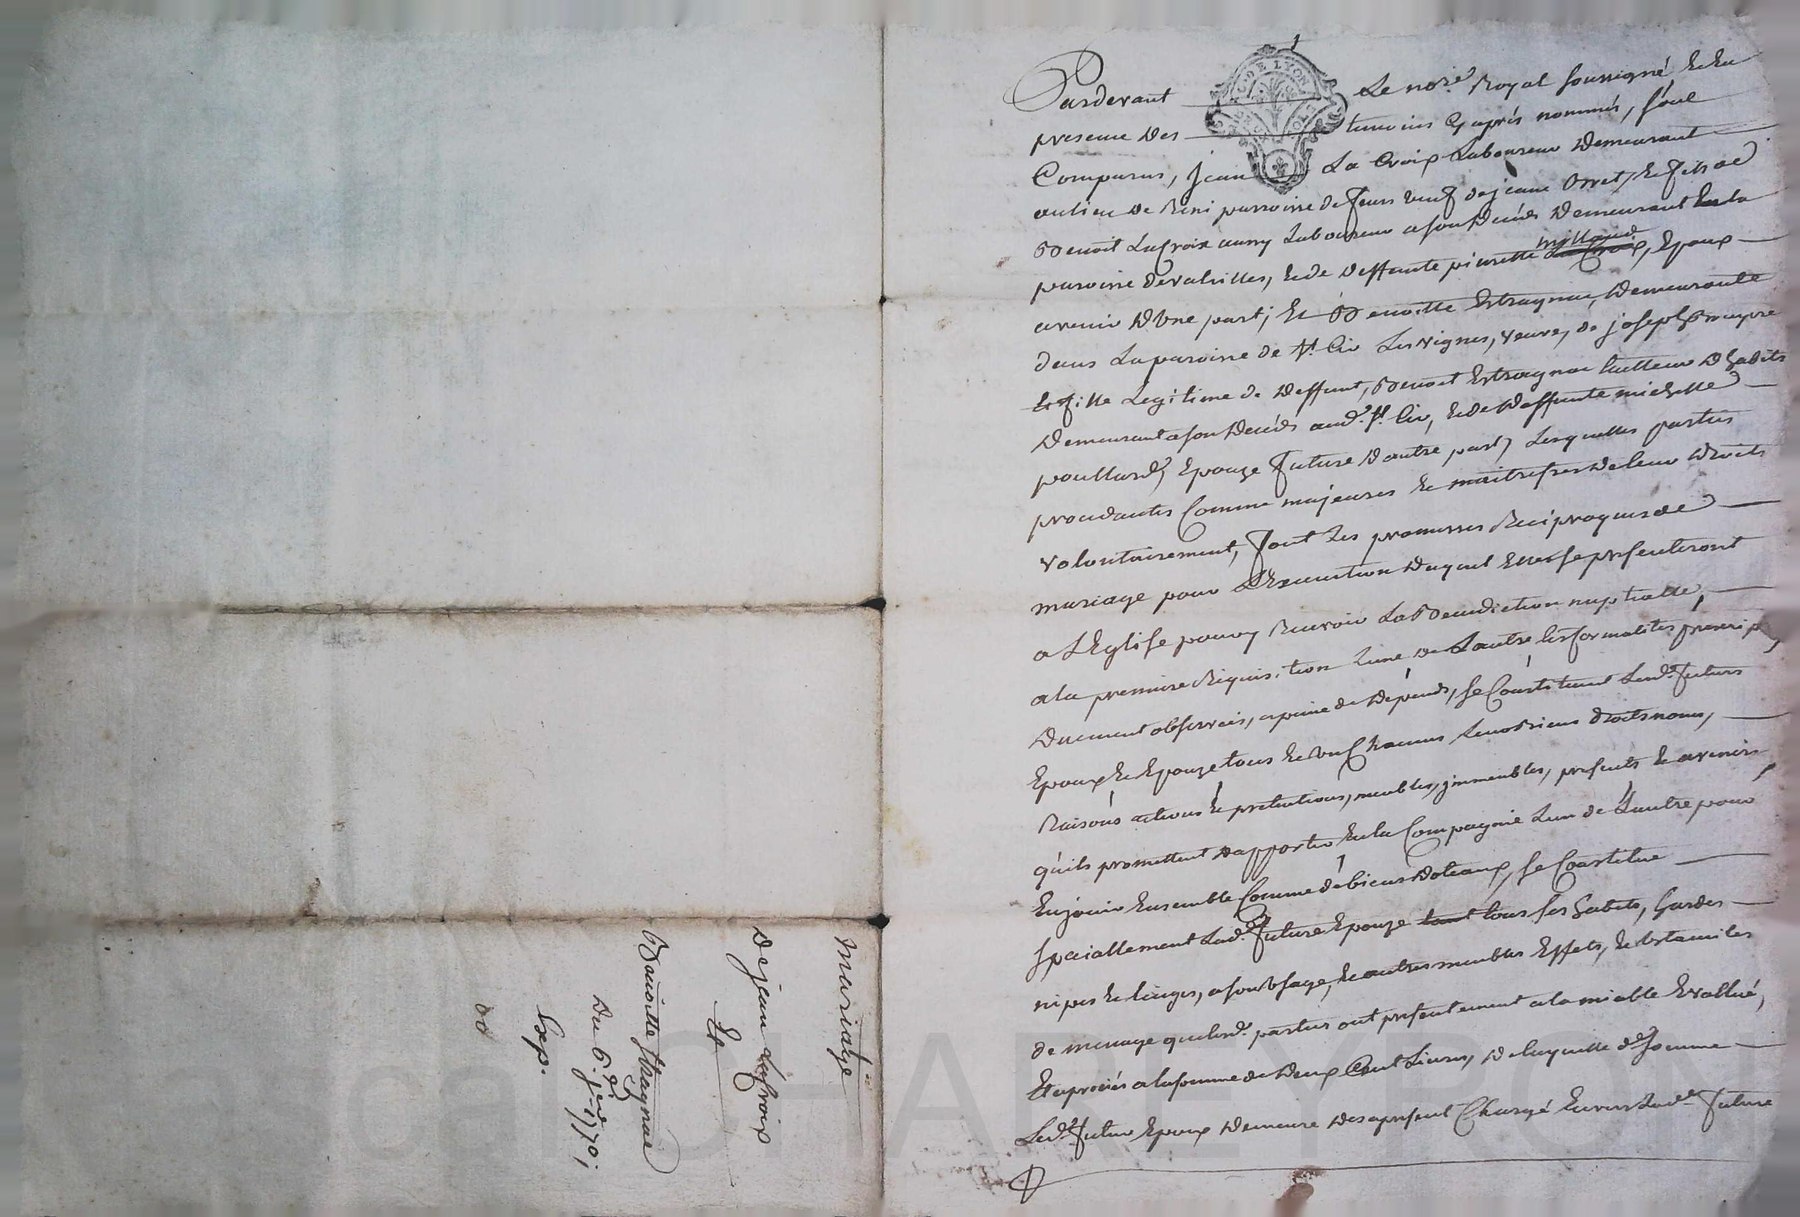 Pardevant Le no.re Royal soussigné, Et En
presence des temoins Cy aprés nommés, sont
Comparus, Jean La Croix Laboureur Demeurant
au lieu de Rini parroisse de feurs veuf de jeanne Orret, Et fils de
Benoit Lacroix aussy Laboureur a son Decés Demeurant En la
paroisse de valeilles, Et de Deffunte pierrette millaud La Croix, Epoux
avenir D'une part; Et Benoitte Estragnac, Demeurante
dans La paroisse de St. Cir Les vignes, veuve, de joseph
Et fille Legitime de Deffunt, Benoit Estragnac tailleur D'habits
Demeurant a son Decés aud. St. Cir, Et de Deffunte michelle
poullard, Epouze future D'autre part, Lesquelles parties
procedantes Comme majeures Et maitresses de leur Droits
volontairement, font Les promesses Reciproques de
mariage pour L'Execution Duquel Elles se presenteront
a L'Eglise pour y Recevoir La Benediction nuptialle,
a la premiere Requisition L'une de L'autre les formalités prescriptes
Duement observées, a peine de Dépends, se Constituent Lesd. futurs
Epoux Et Epouze tous Et un Chacuns Leurs Biens droits noms,
Raisons actions Et pretentions, meubles, jmmeubles, presents Et avenirs
qu'ils promettent D'apporter En la Compagnie L'un de L'autre pour
En jouir Ensemble Comme de biens Dotaux, se Constitue
speciallement Lad. future Epouze tout tous ses habits, hardes
nipes Et linges, a son usage, Et autres meubles Effets, Et Ustenciles
de menage que lesd. parties ont presentement a la miable Evallué,
Et apreciés a la somme de Deux Cent Livres, De laquelle d. somme
Led. futur Epoux Demeure Des apresent Chargé Envers Lad. future
mariage
De jean Lacroix
Et
Benoitte Estragnac
Du 6.e 1770;
Exp.
CHAREYRON